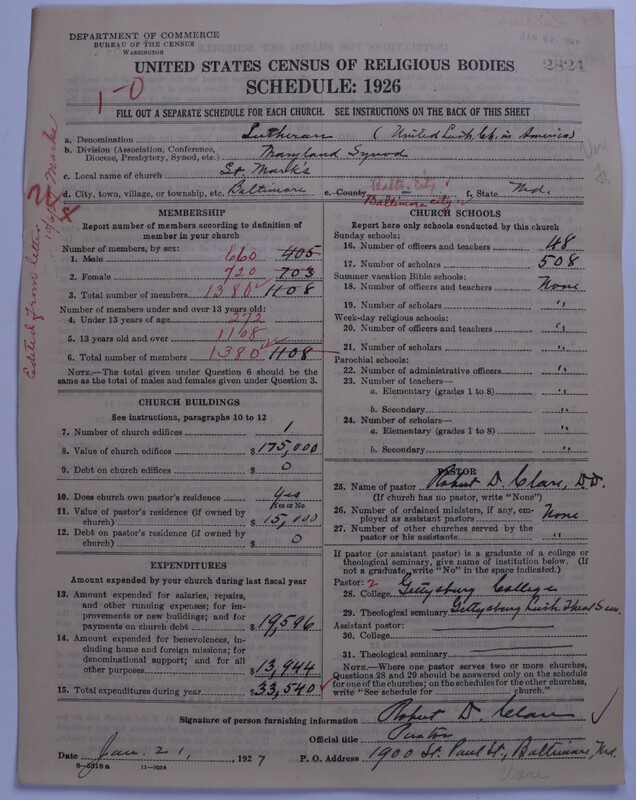 DEPARTMENT OF COMMERCE
BUREAU OF THE CENSUS
WASHINGTON
UNITED STATES CENSUS OF RELIGIOUS BODIES
2824
SCHEDULE: 1926
1-0
FILL OUT A SEPARATE SCHEDULE FOR EACH CHURCH. SEE INSTRUCTIONS ON THE BACK OF THIS SHEET
a. Denomination Lutheran (United Luth. Ch. in America)
b. Division (Association, Conference,
Diocese, Presbytery, Synod, etc.) Maryland Synod
c. Local name of church St. Mark's
d. City, town, village, or township, etc. Baltimore e. County Balto. City Baltimore city f. State Md.
Edited from letter
MEMBERSHIP
Report number of members according to definition of
member in your church
Number of members, by sex:
1. Male 660 405
2. Female 720 703
3. Total number of members 1380 1108
Number of members under and over 13 years old:
4. Under 13 years of age 272
5. 13 years old and over 1108
6. Total number of members 1380 1108
NOTE.—The total given under Question 6 should be
same as the total of males and females given under Question 3.
CHURCH BUILDINGS
See instructions, paragraphs 10 to 12
7. Number of church edifices 1
8. Value of church edifices $ 175,000
9. Debt on church edifices $ 0
10. Does church own pastor's residence Yes
Yes or No
11. Value of pastor's residence (if owned by
church) $ 15,000
12. Debt on pastor's residence (if owned by
church) $ 0
EXPENDITURES
Amount expended by your church during last fiscal year
13. Amount expended for salaries, repairs,
and other running expenses; for im-
provements or new buildings; and for
payments on church debt $ 19,596
14. Amount expended for benevolences, in-
cluding home and foreign missions; for
denominational support; and for all
other purposes $ 13,944
15. Total expenditures during year $ 33,540
CHURCH SCHOOLS
Report here only schools conducted by this church
Sunday schools:
16. Number of officers and teachers 48
17. Number of scholars 508
Summer vacation Bible schools:
18. Number of officers and teachers None
19. Number of scholars "
Week-day religious schools:
20. Number of officers and teachers "
21. Number of scholars "
Parochial schools:
22. Number of administrative officers "
23. Number of teachers—
a. Elementary (grades 1 to 8) "
b. Secondary "
24. Number of scholars—
a. Elementary (grades 1 to 8) "
b. Secondary "
PASTOR
25. Name of pastor Robert D. Clare, D.D.
(If church has no pastor, write "None")
26. Number of ordained ministers, if any, em-
ployed as assistant pastors None
27. Number of other churches served by the
pastor or his assistants "
If pastor (or assistant pastor) is a graduate of a college or
theological seminary, give name of institution below. (If
not a graduate, write "No" in the space indicated.)
Pastor: 2
28. College Gettysburg College
29. Theological seminary Gettysburg Luth. Theol Sem.
Assistant pastor:
30. College
31. Theological seminary
NOTE.—Where one pastor serves two or more churches,
Questions 28 and 29 should be answered only on the schedule
for one of the churches; on the schedules for the other churches,
write "See schedule for church."
Signature of person furnishing information Robert D. Clare
Official title Pastor
Date Jan. 21, 1927 P. O. Address 1900 St. Paul St., Baltimore, Md.
8-5318a 11-9024
Clare